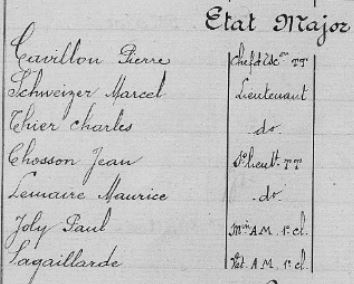 Etat Major
Cavillon Pierre Chef d'Esc.on TT
Schweizer Marcel Lieutenant
Thier Charles do.
Chosson Jean S.Lieutt. TT
Lemaire Maurice do.
Joly Paul Min A.M. 1e cl.
Lagaillarde Vet. A.M. 1e cl.